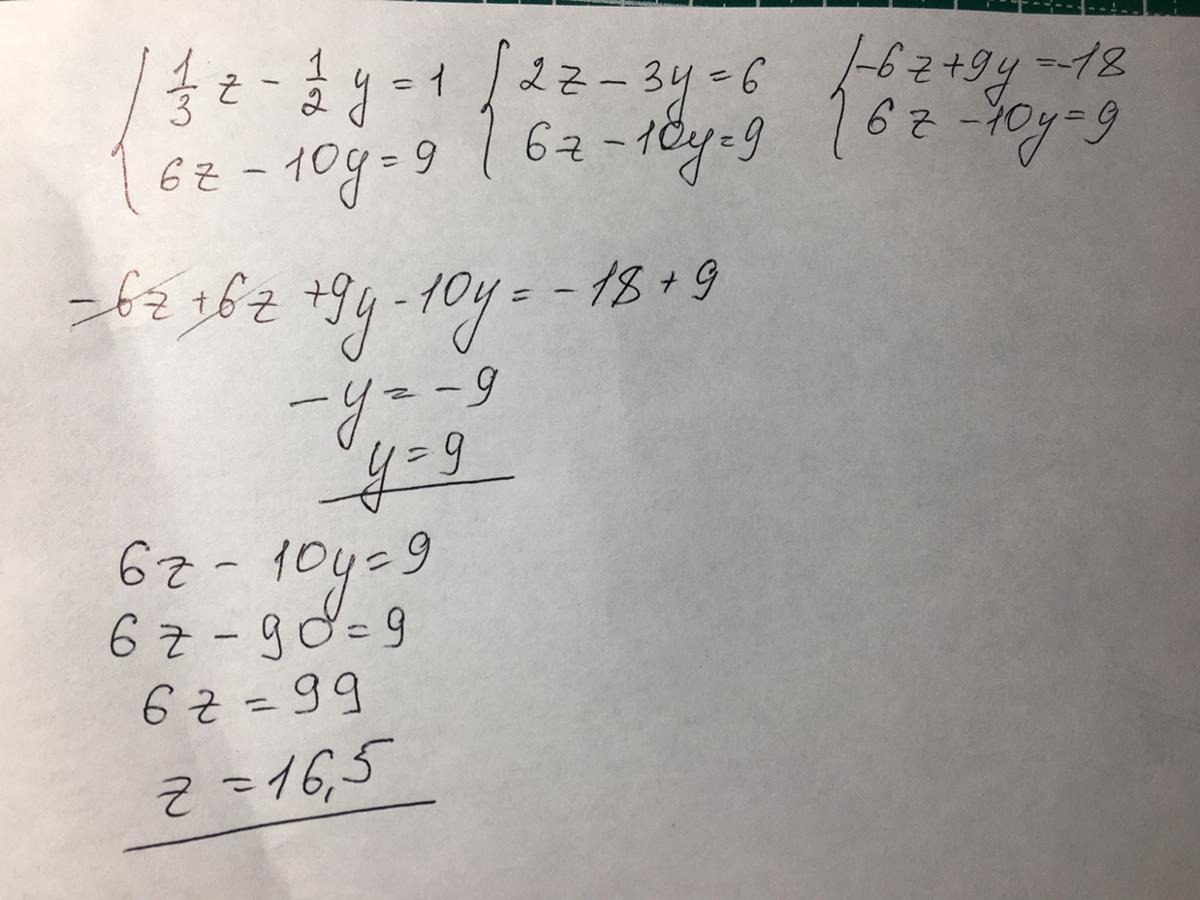 { 1/3 z - 1/2 y = 1 { 2z - 3y = 6 { -6z + 9y = -18
6z - 10y = 9 6z - 10y = 9 6z - 10y = 9
-6z + 6z + 9y - 10y = -18 + 9
-y = -9
y = 9
6z - 10y = 9
6z - 90 = 9
6z = 99
z = 16,5